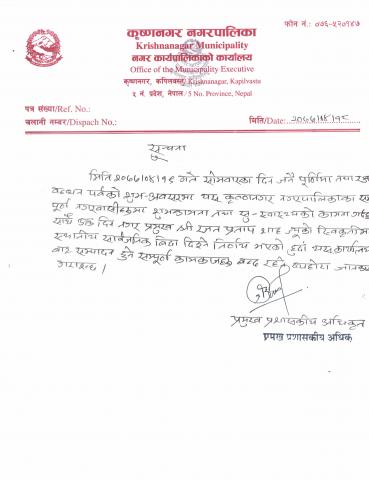 फोन नं.: ०७६-५२०१४७
कृष्णनगर नगरपालिका
Krishnanagar Municipality
नगर कार्यपालिकाको कार्यालय
Office of the Municipality Executive
कृष्णनगर, कपिलवस्तु/ Krishnanagar, Kapilvastu
५ नं. प्रदेश, नेपाल/ 5 No. Province, Nepal
पत्र संख्या/Ref. No.:
चलानी नम्बर/Dispach No.:
मिति/Date:
सुचना
मिति गते सोमवारका दिन जनै पूर्णिमा तथा
बन्धन पर्वको शुभ-अवसरमा यस कृष्णनगर नगरपालिकाका
पूर्ण नगरवासीहरुमा शुभकामना तथा सु-स्वास्थ्यको कामना गर्दै
साथै उक्त दिन नगर प्रमुख श्री रजत प्रताप शाह ज्यूको स्विकृतीमा
स्थानीय सार्वजनिक बिदा दिइने निर्णय भएको हुदाँ यस कार्यालय
बाट सम्पादन हुने सम्पूर्ण कामकाजहरु बन्द रहने व्यहोरा जानकारी
गराइन्छ।
प्रमुख प्रशासकीय अधिकृत
प्रमुख प्रशासकीय अधिक